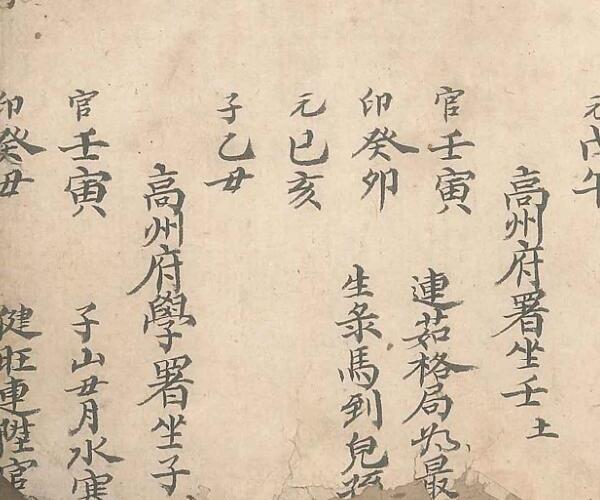 元戊午
高州府署坐壬土
官壬寅 連茹格局為最
印癸卯 生彔馬到兒孫
元己亥
子乙丑
高州府學署坐子
官壬寅 子山丑月水寒
印癸丑 健旺連陞官